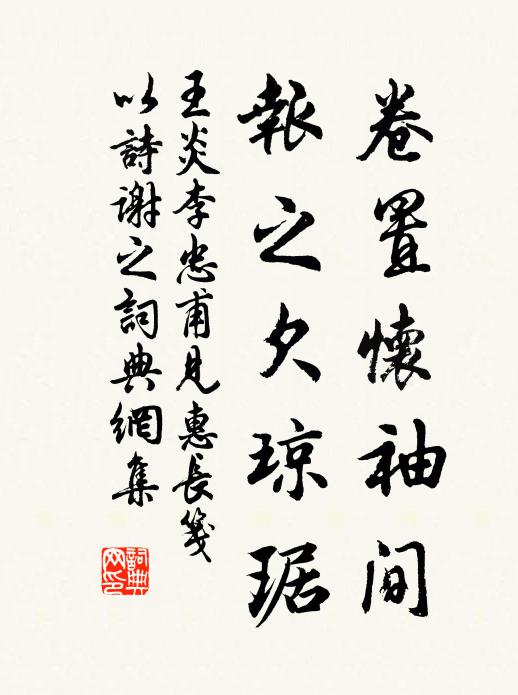 卷置懷袖間
報之欠瓊琚
王炎李忠甫見惠長箋
以詩謝之詞典網集
詞典网印